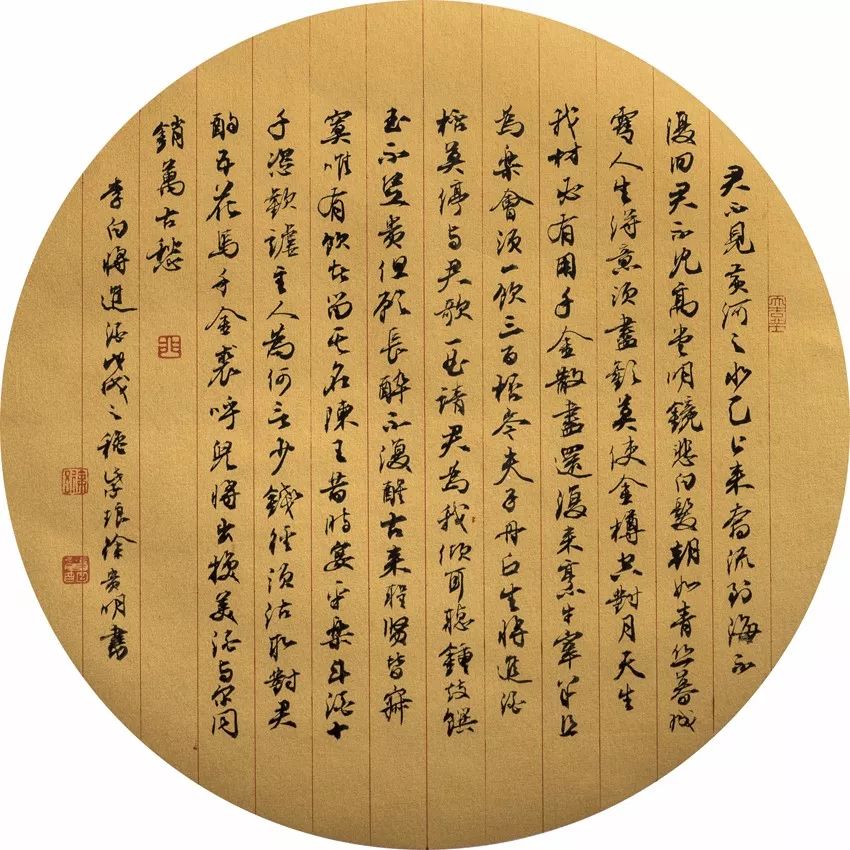 君不見黄河之水天上來奔流到海不
復回君不見高堂明鏡悲白髮朝如青絲暮成
雪人生得意須盡歡莫使金樽空對月天生
我材必有用千金散盡還復來烹牛宰羊且
為樂會須一飲三百杯岑夫子丹丘生將進酒
杯莫停与君歌一曲請君為我傾耳聽鍾鼓饌
玉不足貴但願長醉不復醒古來聖賢皆寂
寞唯有飲者留其名陳王昔時宴平樂斗酒十
千恣歡謔主人為何言少錢徑須沽取對君
酌五花馬千金裘呼兒將出換美酒与尔同
銷萬古愁
李白將進酒戊戌之穐紫琅徐貴明書